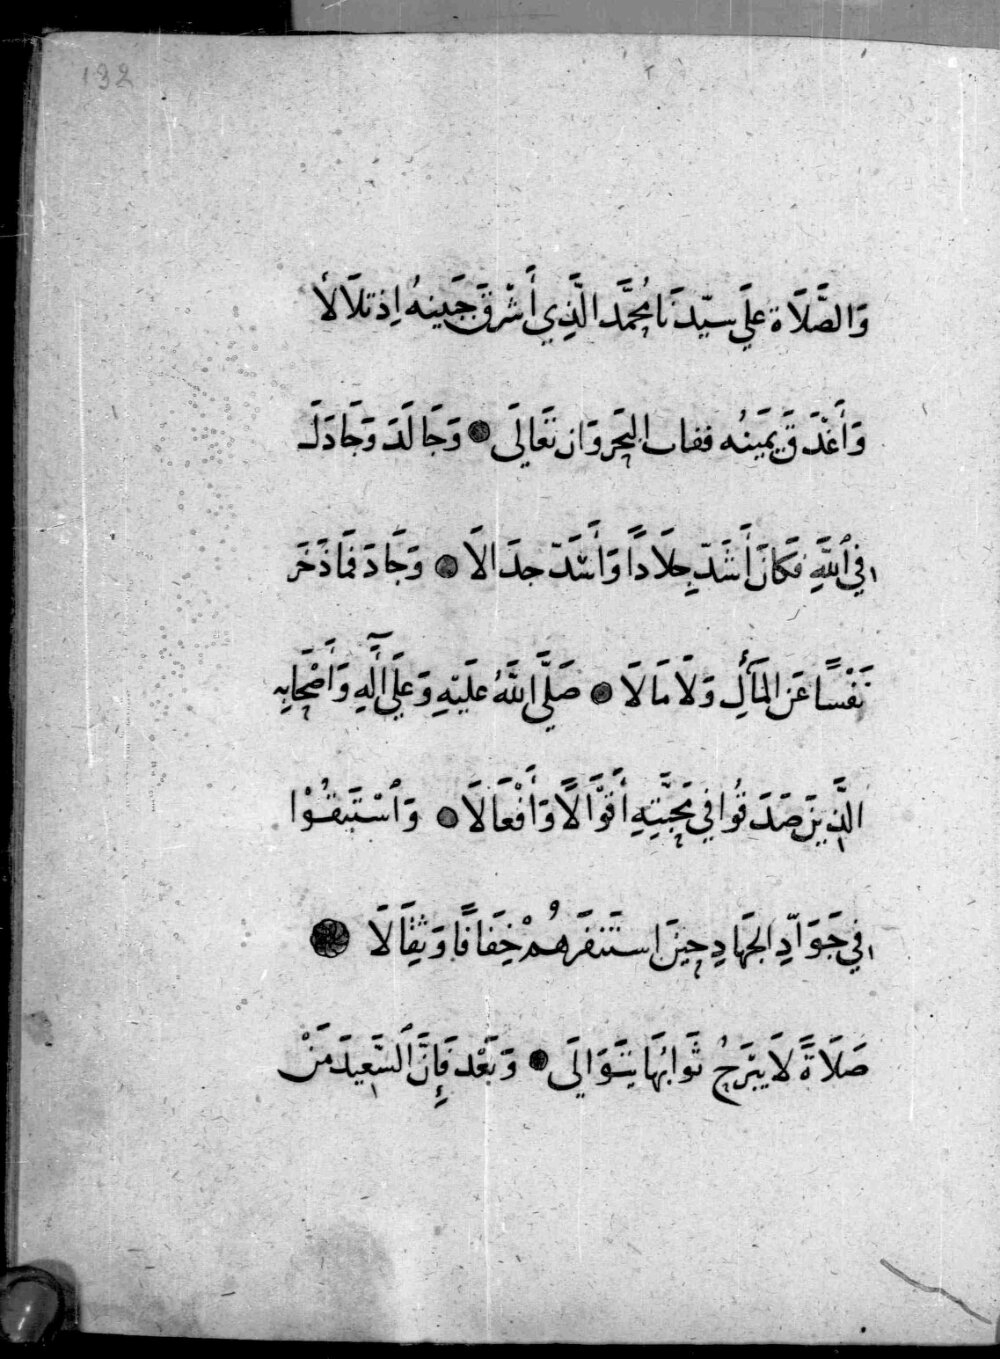 132
وَالصَّلَاة عَلَي سيّدنَا مُحمَّد الَّذِي أَشْرقَ جَبينهُ اِذ تلَالَأ
وَأَغْدَقَ يَمَينُه ففاب البَحر وَان تَعَالَى ● وَجَالَدَ وَجَادَلَ
في اللَّهِ فكَانَ أَشَدّ جِلَادًا وَأَشَدّ جدَالَا ● وَجَادَ فمَا ذَخَرَ
نَفْسًا عَن المَآلِ وَلَا مَالَا ● صَلَّي اللَّهُ عَلَيْهِ وَعَلَي آلِهِ وَأَصْحَابِه
الَّذِينَ صَدَقُوا فِي مَحَبَّتِهِ أَقوَالًا وَأَفْعَالَا ● وَاسْتَبَقُوْا
في جَوَادِّ الجهَادِ حِينَ استَنفَرَهُمْ خِفَافًا وَثِقَالَا
صَلَاةً لَا يَبْرَحُ ثَوَابُهَا يَتَوَالَي ● وَبَعْد فَإِنَّ السَّعِيدَ مَنْ